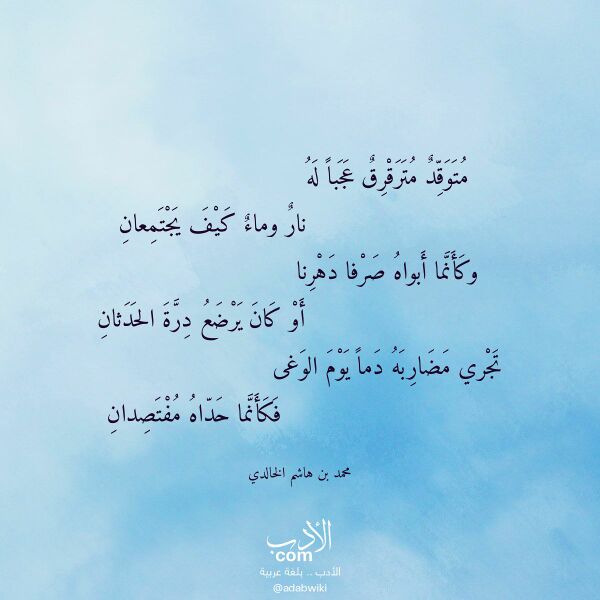 مُتَوَقِّدٌ مُتَرَقْرِقٌ عَجَباً لَهُ
نارٌ وماءٌ كَيْفَ يَجْتَمِعانِ
وكَأَنَّما أَبواهُ صَرْفا دَهْرِنا
أَوْ كَانَ يَرْضَعُ دِرَّةَ الحَدَثانِ
تَجْري مَضَارِبَهُ دَماً يَوْمَ الوَغى
فَكَأَنَّما حَدّاهُ مُفْتَصِدانِ
محمد بن هاشم الخالدي
الأدب
com
الأدب .. بلغة عربية
@adabwiki